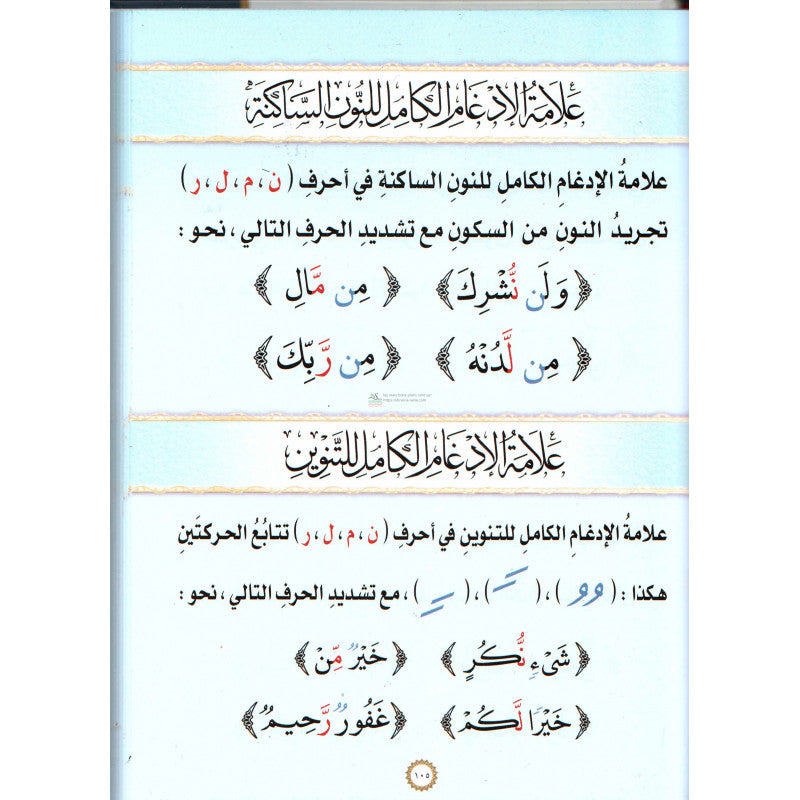 عَلَامَةُ الإِدْغَامِ الكَامِلِ لِلنُّونِ السَّاكِنَةِ
علامةُ الإدغامِ الكاملِ للنونِ الساكنةِ في أحرفِ ( ن ، م ، ل ، ر )
تجريدُ النونِ من السكونِ مع تشديدِ الحرفِ التالي ، نحو :
﴿ وَلَن نُّشْرِكَ ﴾ ﴿ مِن مَّالٍ ﴾
﴿ مِن لَّدُنْهُ ﴾ ﴿ مِن رَّبِّكَ ﴾
عَلَامَةُ الإِدْغَامِ الكَامِلِ لِلتَّنْوِينِ
علامةُ الإدغامِ الكاملِ للتنوينِ في أحرفِ ( ن ، م ، ل ، ر ) تتابُعُ الحركتَينِ
هكذا : ( ُُ ) ، ( ََ ) ، ( ِِ ) ، مع تشديدِ الحرفِ التالي ، نحو :
﴿ شَىْءٍ نُّكُرٍ ﴾ ﴿ خَيْرٌ مِّنْ ﴾
﴿ خَيْرًا لَّكُمْ ﴾ ﴿ غَفُورٌ رَّحِيمٌ ﴾
١٠٥